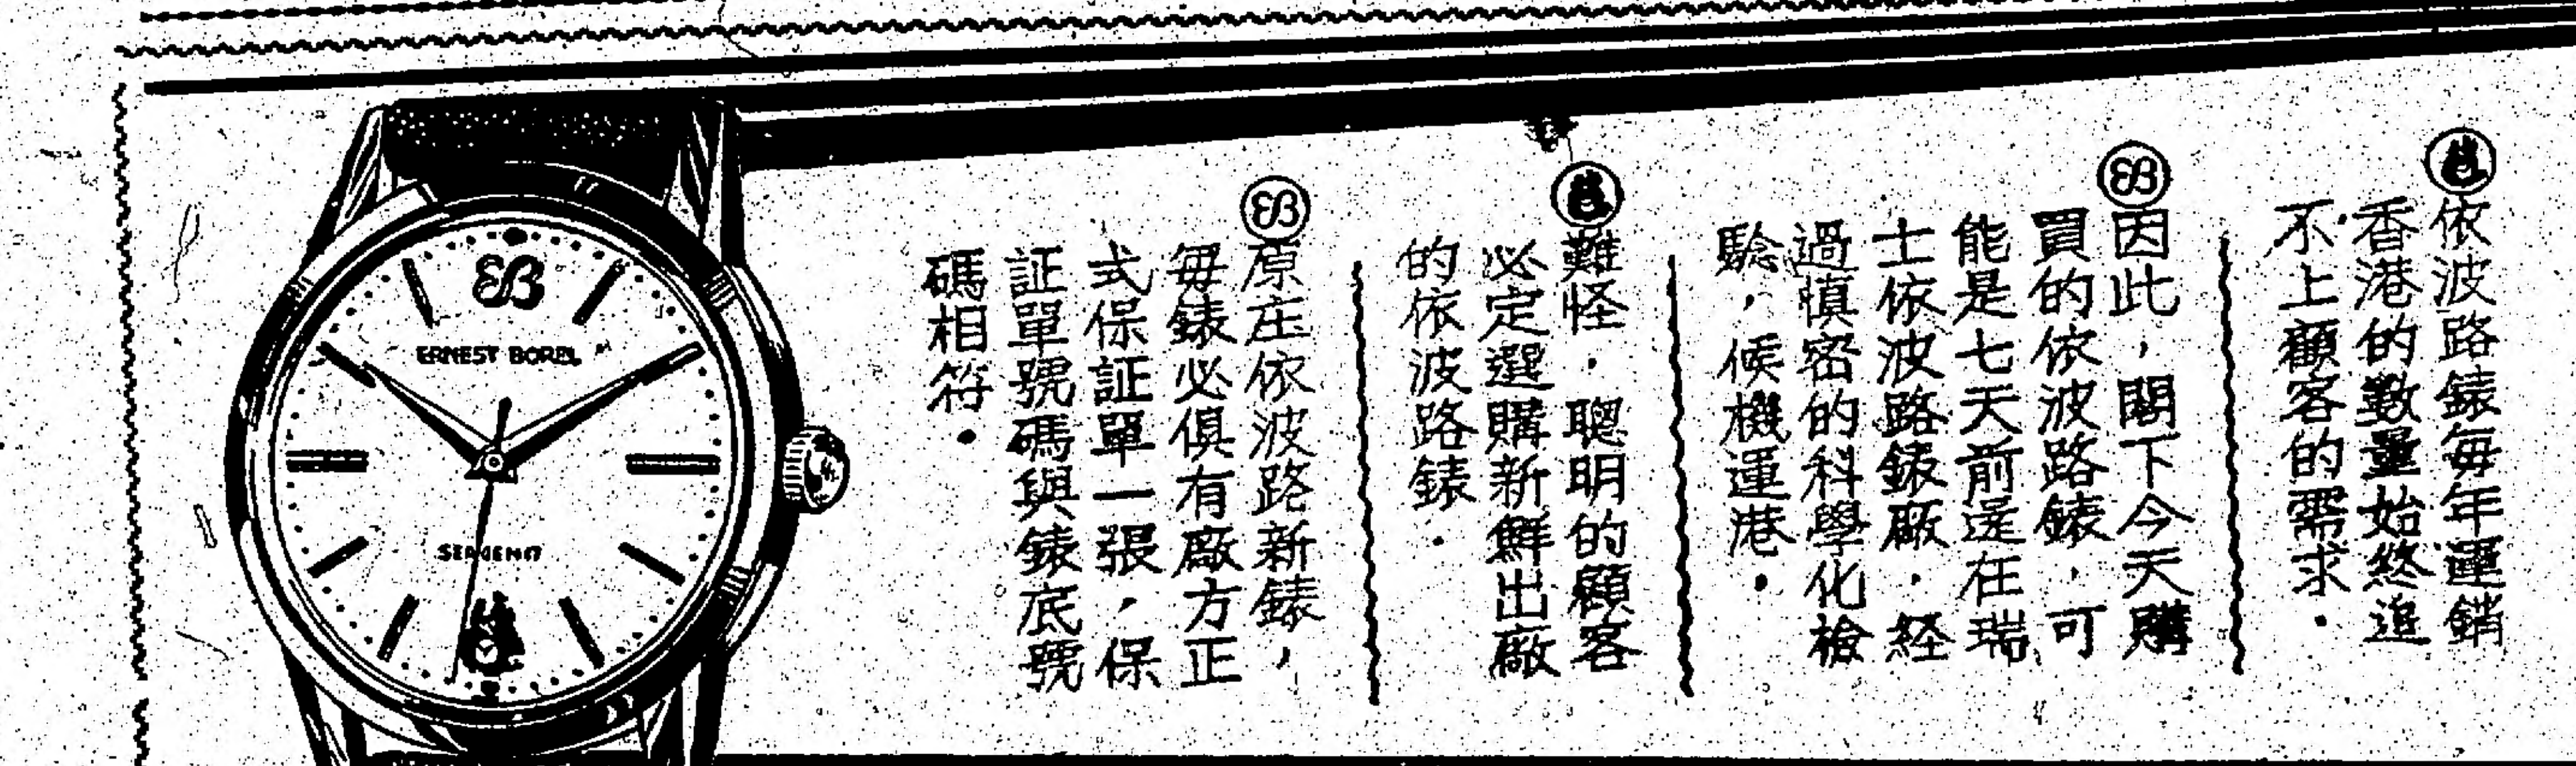 依波路錶每年運銷
香港的數量始終追
不上顧客的需求．
因此，閣下今天購
買的依波路錶，可
能是七天前還在瑞
士依波路錶廠．経
過慎密的科學化檢
驗，候機運港．
難怪．聰明的顧客
必定選購新鮮出廠
的依波路錶．
原庄依波路新錶，
毎錶必俱有廠方正
式保証單一張，保
証單號碼與錶底號
碼相符．
EB
ERNEST BOREL